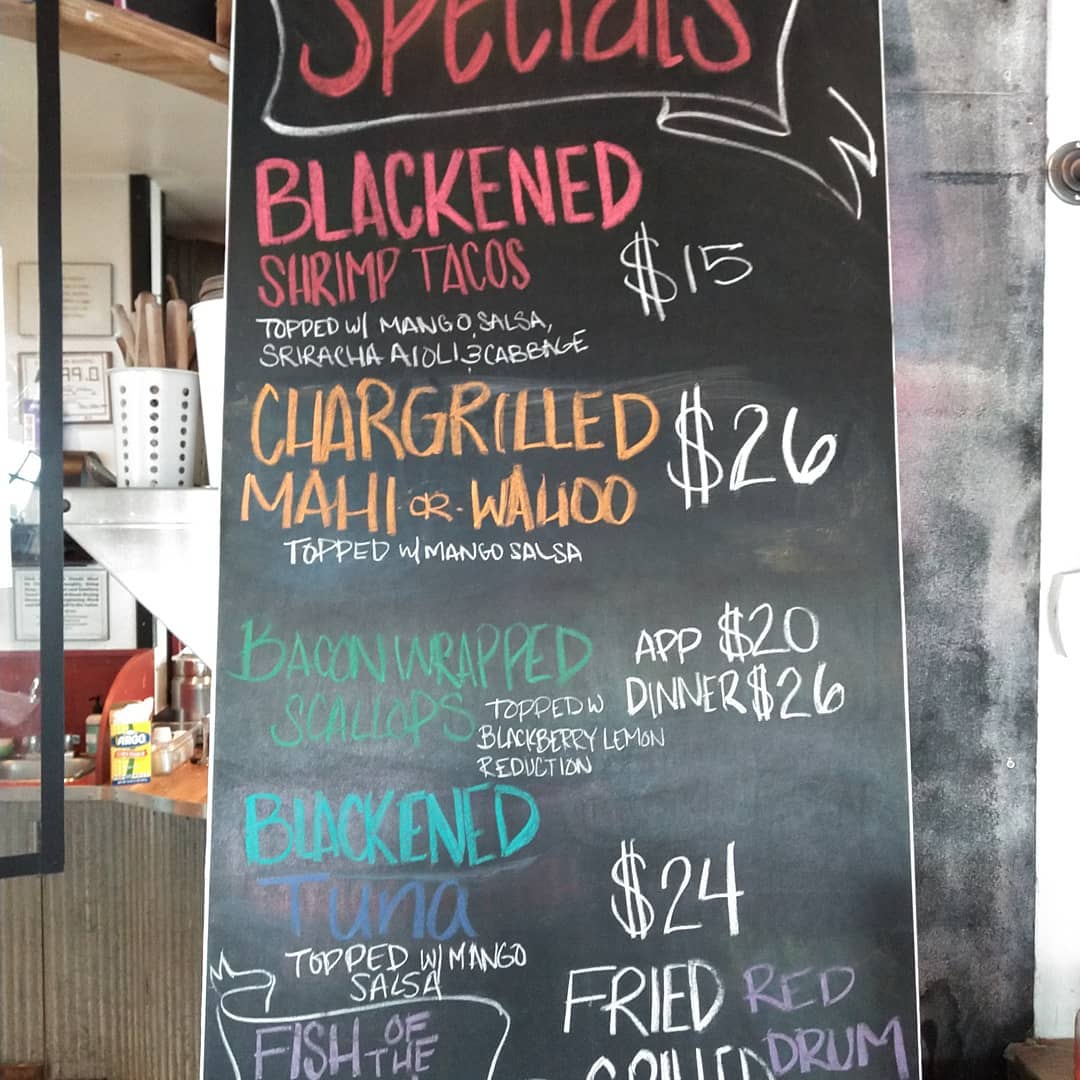 Specials
BLACKENED
SHRIMP TACOS $15
TOPPED W/ MANGO, SALSA,
SRIRACHA AIOLI & CABBAGE
CHARGRILLED $26
MAHI OR WAHOO
TOPPED W/ MANGO SALSA
BACON WRAPPED APP $20
SCALLOPS TOPPED W DINNER $26
BLACKBERRY LEMON
REDUCTION
BLACKENED
Tuna $24
TOPPED W/ MANGO
SALSA
FISH OF THE
FRIED RED
GRILLED DRUM
ARGO